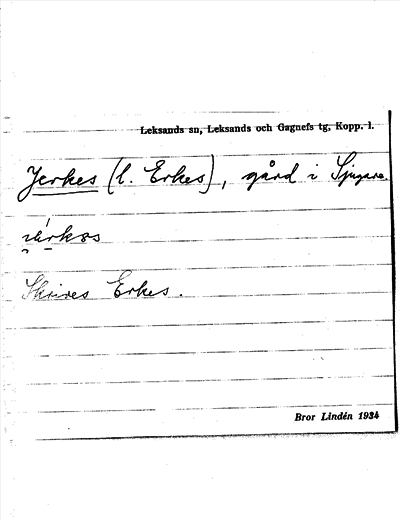 Leksands sn, Leksands och Gagnefs tg, Kopp. l.
Jerkes (l. Erkes), gård i Sjugare.
Skrives Erkes.
Bror Lindén 1934